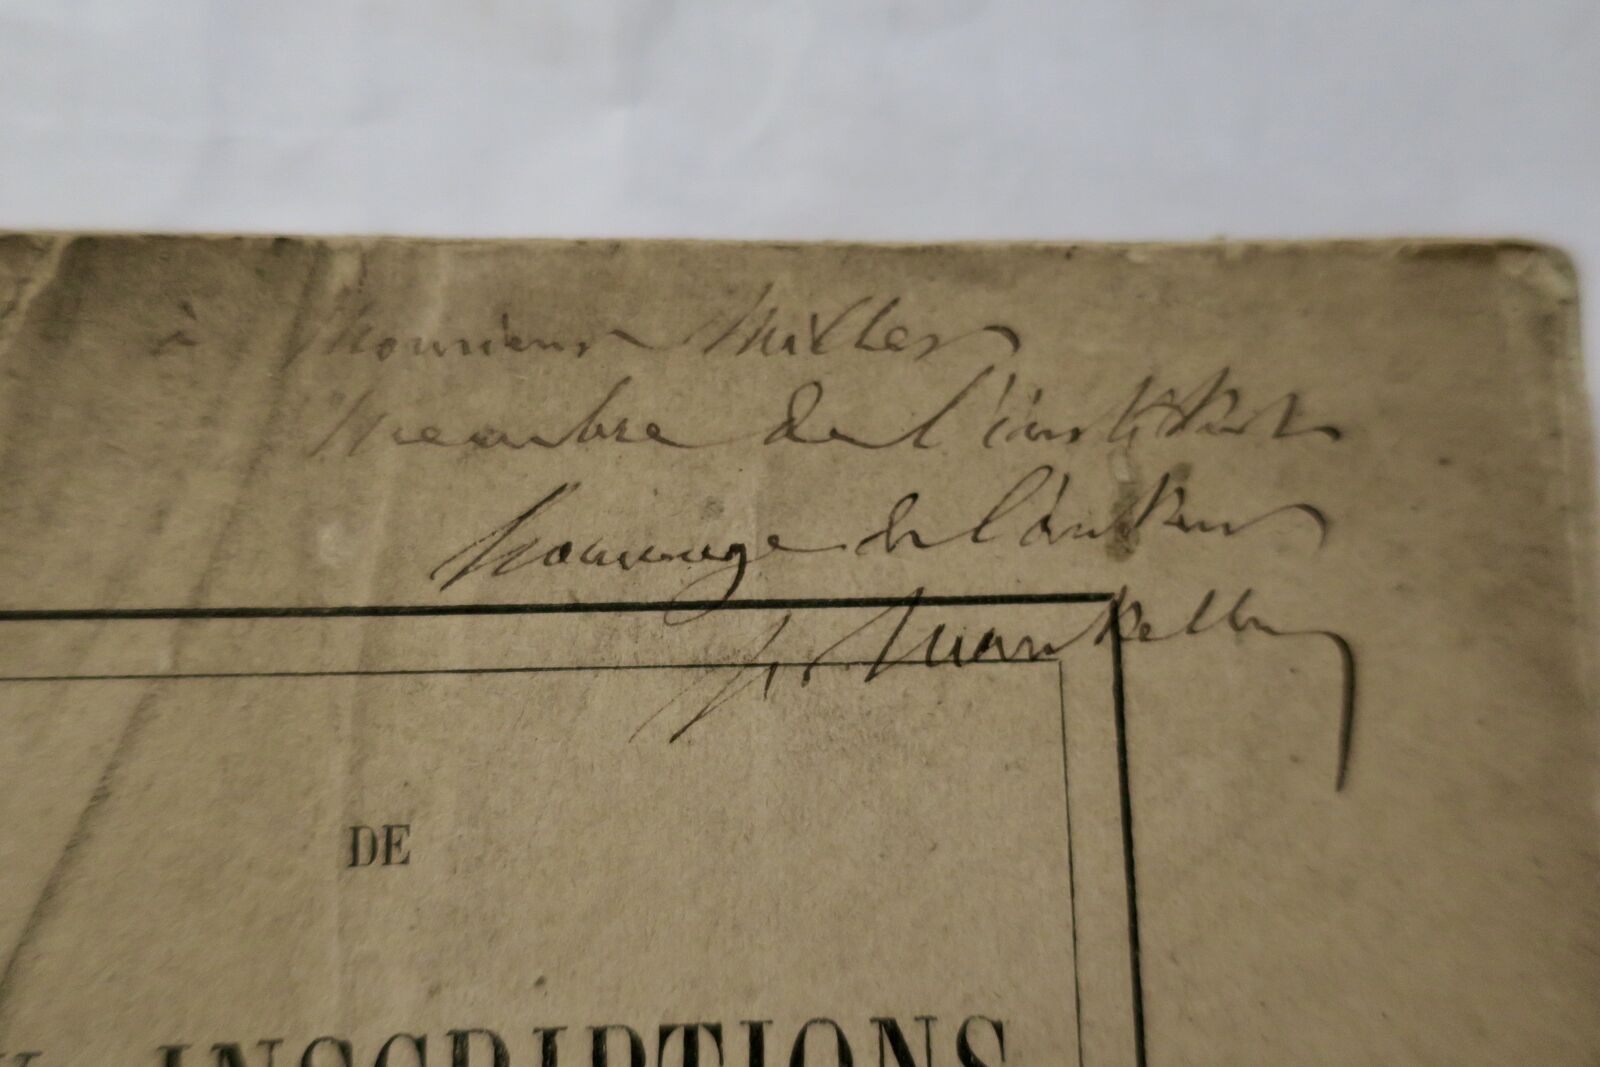 à Monsieur Miller
Membre de l'institut
hommage de l'auteur
DE
INSCRIPTIONS